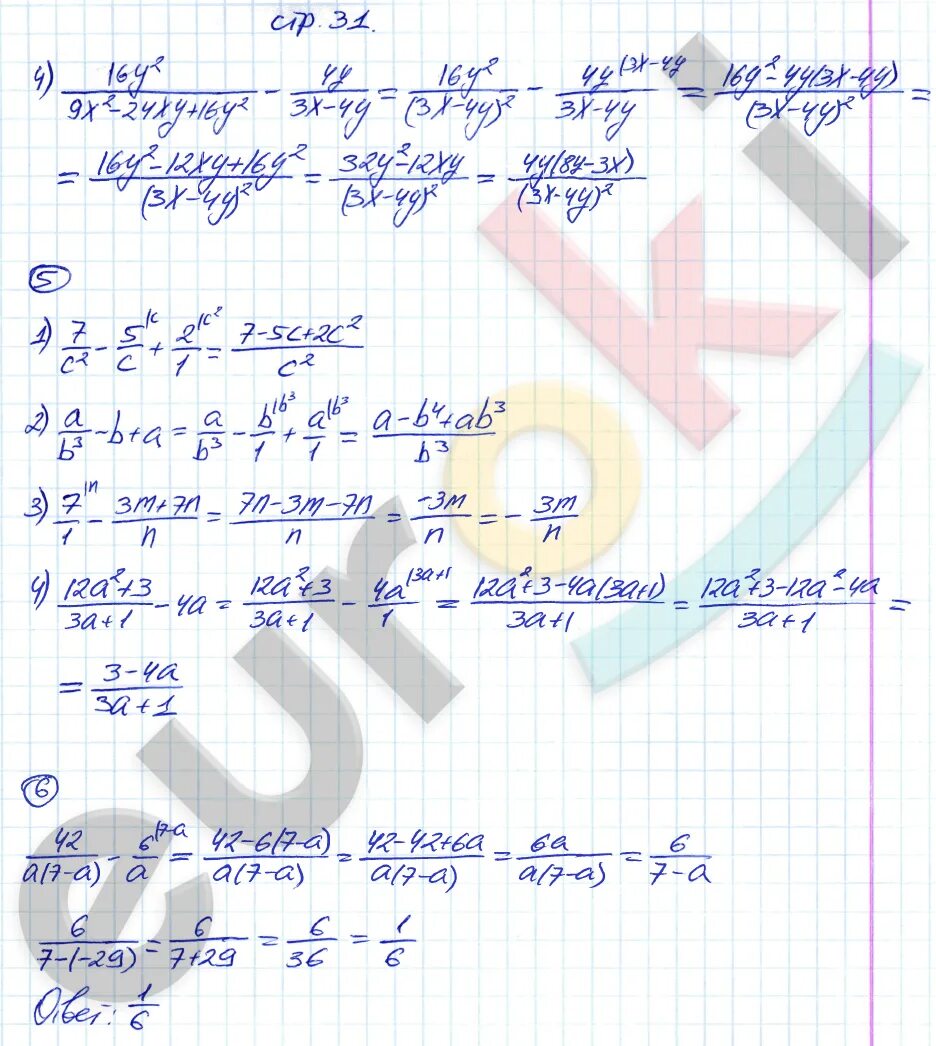 стр. 31.
4) 16y²/(9x²-24xy+16y²) - 4y/(3x-4y) = 16y²/(3x-4y)² - 4y|3x-4y/(3x-4y) = (16y²-4y(3x-4y))/(3x-4y)² =
= (16y²-12xy+16y²)/(3x-4y)² = (32y²-12xy)/(3x-4y)² = 4y(8y-3x)/(3x-4y)²
5
1) 7/c² - 5|c/c + 2|c²/1 = (7-5c+2c²)/c²
2) a/b³ - b + a = a/b³ - b|b³/1 + a|b³/1 = (a-b⁴+ab³)/b³
3) 7|n/1 - (3m+7n)/n = (7n-3m-7n)/n = -3m/n = - 3m/n
4) (12a²+3)/(3a+1) - 4a = (12a²+3)/(3a+1) - 4a|3a+1/1 = (12a²+3-4a(3a+1))/(3a+1) = (12a²+3-12a²-4a)/(3a+1) =
= (3-4a)/(3a+1)
6
42/(a(7-a)) - 6|7-a/a = (42-6(7-a))/(a(7-a)) = (42-42+6a)/(a(7-a)) = 6a/(a(7-a)) = 6/(7-a)
6/(7-(-29)) = 6/(7+29) = 6/36 = 1/6
Ответ: 1/6
euroki